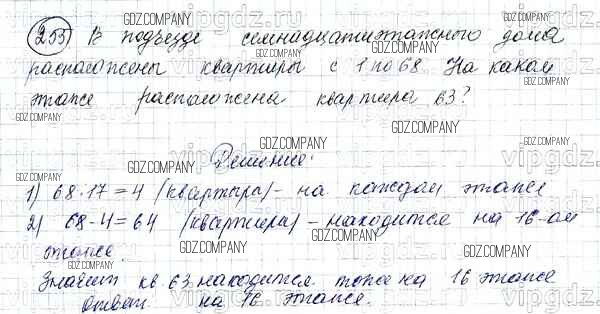 253 В подъезде семнадцатиэтажного дома
расположены квартиры с 1 по 68. На каком
этаже расположена квартира 63?
Решение:
1) 68:17=4 (квартира) - на каждом этаже
2) 68-4=64 (квартира) - находится на 16-ом
этаже.
Значит кв. 63 находится тоже на 16 этаже
Ответ на 16 этаже.
GDZ.COMPANY
vipgdz